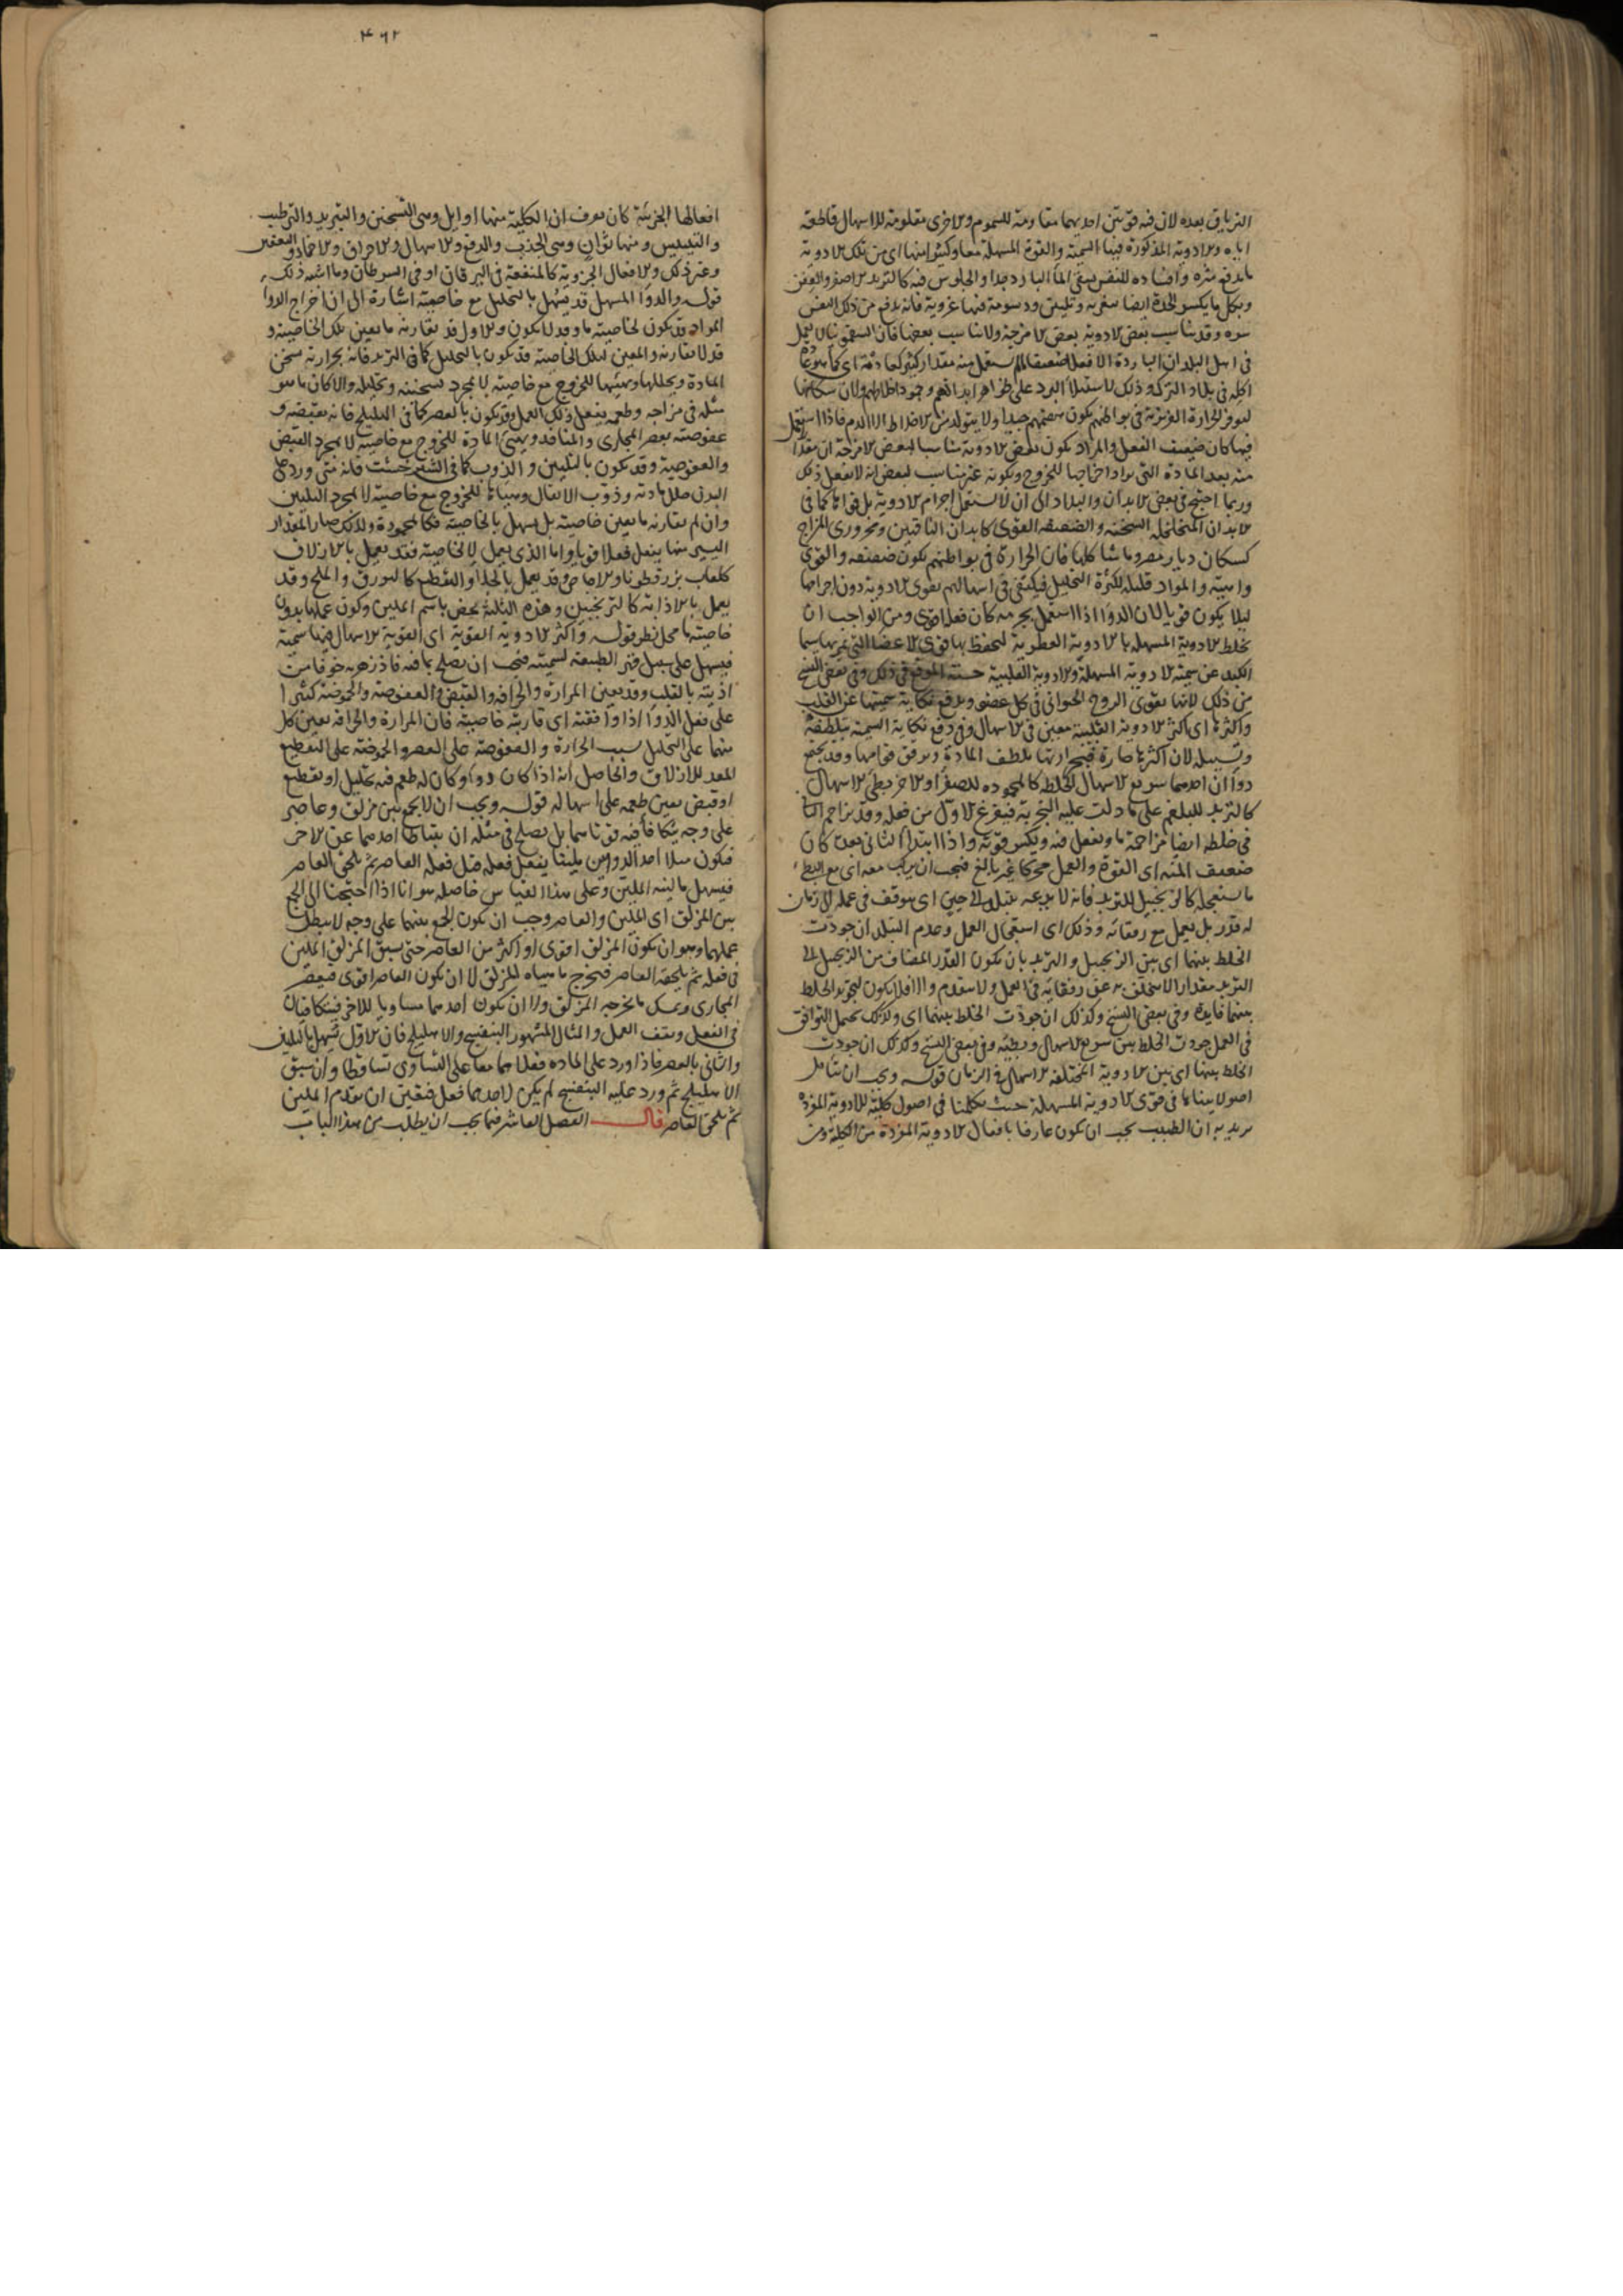 الترياق بعده لان فيه قوتين احديهما مقاومة للسموم والاخرى مقاومة للاسهال قاطعة
اياه والادوية المذكورة فيها السمية والقوة المسهلة معا وكثيرا منها اى من تلك الادوية
ما يدفع شره وافساده للنفس سقى الماء البارد جدا والجلوس فيه كالتربد الاصفر والعفن
وبكل ما يكسر الحدة ايضا بتغرية وتليين ودسومة فيها غروية فانه يدفع من ذلك النفس
سره وقد يناسب بعض الادوية بعض الامزجة ولا يناسب بعضها فان السقمونيا لا يعمل
فى اهل البلدان الباردة الا فعلا ضعيفا ما لم يستعمل منه مقدار كثير كعادته اى كما هو عادة
اكله فى بلاد الترك وذلك لاستيلاء البرد على ظواهر ابدانهم وجمود اخلاطهم ولان سكانها
لتوفر الحرارة الغريزية فى بواطنهم يكون هضمهم جيدا ولا يتولد من الاخلاط الا الدم فاذا استعمل
فيها كان ضعيف الفعل والمراد بكون بعض الادوية مناسبا لبعض الامزجة ان مقدارا
منه يعد المادة التى يراد اخراجها للخروج وبكونه غير مناسب لبعض انه لا يفعل ذلك
وربما احتيج فى بعض الابدان والبلاد الى ان لا يستعمل اجرام الادوية بل قواها كما فى
الابدان المتخلخلة السخنة والضعيفة القوى كابدان الناقهين ومحرورى المزاج
كسكان ديار مصر وما شاكلها فان الحرارة فى بواطنهم يكون ضعيفة والقوى
واهية والمواد قليلة لكثرة التحليل فيكتفى فى اسهالهم بقوى الادوية دون اجرامها
ليلا يكون قويا لان الدواء اذا استعمل بجرمه كان فعله اقوى ومن الواجب ان
تخلط الادوية المسهلة بالادوية العطرية لتحفظ بها قوى الاعضا التى تمر بها سيما
الكبد عن سمية الادوية المسهلة والادوية القلبية حسنة الموقع فى ذلك وفى بعض النسخ
من ذلك لانها تقوى الروح الحيوانى فى كل عضو ويدفع نكاية سميتها عن القلب
واكثرها اى اكثر الادوية القلبية معين فى الاسهال وفى دفع نكاية السمية بتلطيفه
وتسييله لان اكثرها حارة فبحرارتها يلطف المادة ويرقق قوامها وقد يجتمع
دواآن احدهما سريع الاسهال لخلطه كالمحمودة للصفرا والاخر بطئ الاسهال
كالتربد للبلغم على ما دلت عليه التجربة فيفرغ الاول من فعله وقد يزاحم الثانى
فى خلطه ايضا مزاحمة ما ويفعل فيه ويكسر قوته واذا ابتدأ الثانى بعده كان
ضعيف المنة اى القوة والعمل محركا غير بالغ فيجب ان يركب معه اى مع البطئ
ما يستعجله كالزنجبيل للتربد فانه لا يدعه يتبلد الى حين اى يتوقف فى عمله الى زمان
له قدر بل يعمل مع رفقائه وذلك اى استعجال العمل وعدم التبلد ان جودت
الخلط بينهما اى بين الزنجبيل والتربد بان يكون القدر المضاف من الزنجبيل الى
التربد مقدارا لا يتخلف به عن رفقائه فى العمل ولا يتقدم والا فلا يكون لتجويد الخلط
بينهما فايدة وفى بعض النسخ وكذلك ان جودت الخلط بينهما اى وكذلك يحصل التوافق
فى العمل جودت الخلط بين سريع الاسهال وبطيئه وفى بعض النسخ وكذلك ان جودت
الخلط بينهما اى بين الادوية المختلفة الاسهال فى الزمان قوله ويجب ان يتأمل
اصولا بيناها فى قوى الادوية المسهلة حيث تكلمنا فى اصول كلية للادوية المفردة
يريد به ان الطبيب يجب ان يكون عارفا بافعال الادوية المفردة من الكلية ومن
٤٦٢
افعالها الجزئية كان يعرف ان الكلية منها اوايل وهى التسخين والتبريد والترطيب
والتيبيس ومنها ثوان وهى الجذب والدفع والاسهال والاحراق والاخماد والتعفين
وغير ذلك والافعال الجزوية كالمنفعة فى اليرقان او فى السرطان وما اشبه ذلك
قوله والدواء المسهل قد يسهل بالتحليل مع خاصيته اشارة الى ان اخراج الدواء
المواد قد يكون لخاصيته ما وقد لا يكون والاول قد يقارنه ما يعين تلك الخاصية و
قد لا يقارنه والمعين لتلك الخاصية قد يكون بالتحليل كما فى التربد فانه بحرارته يسخن
المادة ويحللها ويهيئها للخروج مع خاصيته لا بمجرد تسخينه وتحليله والا كان ما هو
مثله فى مزاجه وطعمه يفعل ذلك العمل وقد يكون بالعصر كما فى الهليلج فانه بقبضه و
عفوصته يعصر المجارى والمنافذ ويهيئ المادة للخروج مع خاصيته لا بمجرد القبض
والعفوصة وقد يكون بالتليين والذوب كما فى الشيرخشت فانه متى ورد على
البدن حلل مادته وذوب الاثفال وهيأها للخروج مع خاصيته لا بمجرد التليين
وان لم يقارنه ما يعين خاصيته بل يسهل بالخاصية فكالمحمودة ولذلك صار المقدار
اليسير منها يفعل فعلا قويا واما الذى يعمل لا لخاصية فقد يعمل بالازلاق
كلعاب بزرقطونا والاجاص وقد يعمل بالجلاء والتقطيع كالبورق والملح وقد
يعمل بالاذابة كالترنجبين وهذه الثلثة يخص باسم الملين وكون عملها بدون
خاصيتها محل نظر قوله واكثر الادوية القوية اى القوية الاسهال فيها سمية
فيسهل على سبيل قهر الطبيعة لسميته فيجب ان يصلح بما فيه فاذزهرية خوفا من
اذيته بالقلب وقد يعين المرارة والحرافة والقبض والعفوصة والحموضة كثيرا
على فعل الدواء اذا وافقته اى قارنته خاصيته فان المرارة والحرافة يعين كل
منهما على التحليل بسبب الحرارة والعفوصة على العصر والحموضة على التقطيع
المعد للازلاق والحاصل انه اذا كان دواء وكان له طعم فيه تحليل او تقطيع
او قبض يعين طعمه على اسهاله قوله ويجب ان لا يجمع بين مزلق وعاصر
على وجه يتكافأ فيه قوتاهما بل يصلح فى مثله ان يتباطأ احدهما عن الاخر
فيكون مثلا احد الدواءين يلينا يفعل فعله قبل فعله العاصر ثم يلحق العاصر
فيسهل ما لينه الملين وعلى هذا القياس حاصله هو انا اذا احتجنا الى الجمع
بين المزلق اى الملين والعاصر وجب ان يكون الجمع بينهما على وجه لا يبطل
عملهما وهو ان يكون المزلق اقوى او اكثر من العاصر حتى يسبق المزلق الملين
فى فعله ثم يلحقه العاصر فيخرج ما هياه المزلق لا ان يكون العاصر اقوى فيعصر
المجارى ويمسك ما يخرجه المزلق ولا ان يكون احدهما مساويا للاخر فيتكافيان
فى الفعل ويقف العمل والمثال المشهور البنفسج والاهليلج فان الاول يسهل بالتليين
والثانى بالعصر فاذا ورد على المادة فعلاهما معا على التساوى تساقطا وان سبق
الاهليلج ثم ورد عليه البنفسج لم يكن لاحدهما فعل فتعين ان يتقدم الملين
ثم يلحق العاصر قال الفصل العاشر فيما يجب ان يطلب من هذا الباب